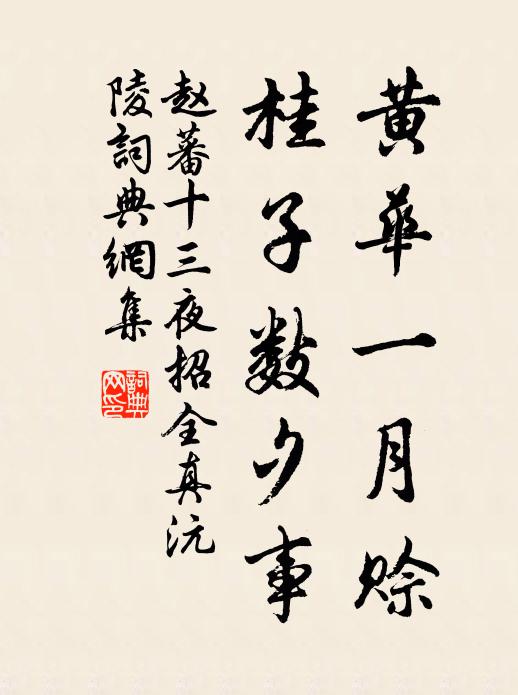 黄華一月賒
桂子數夕事
赵蕃十三夜招全真沅
陵詞典網集
詞典網印